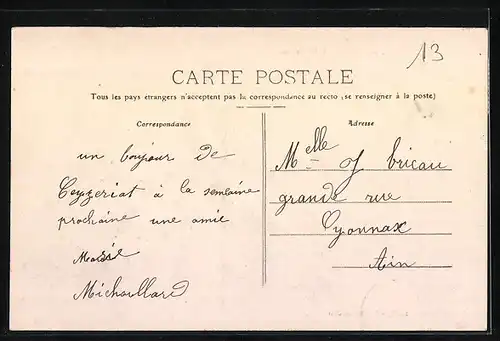 13
CARTE POSTALE
Tous les pays étrangers n'acceptent pas la correspondance au recto (se renseigner à la poste)
Correspondance
Adresse
un bonjour de
Ceyzeriat à la semaine
prochaine une amie
Michaillard
Melle J bricau
grande rue
Oyonnax
Ain